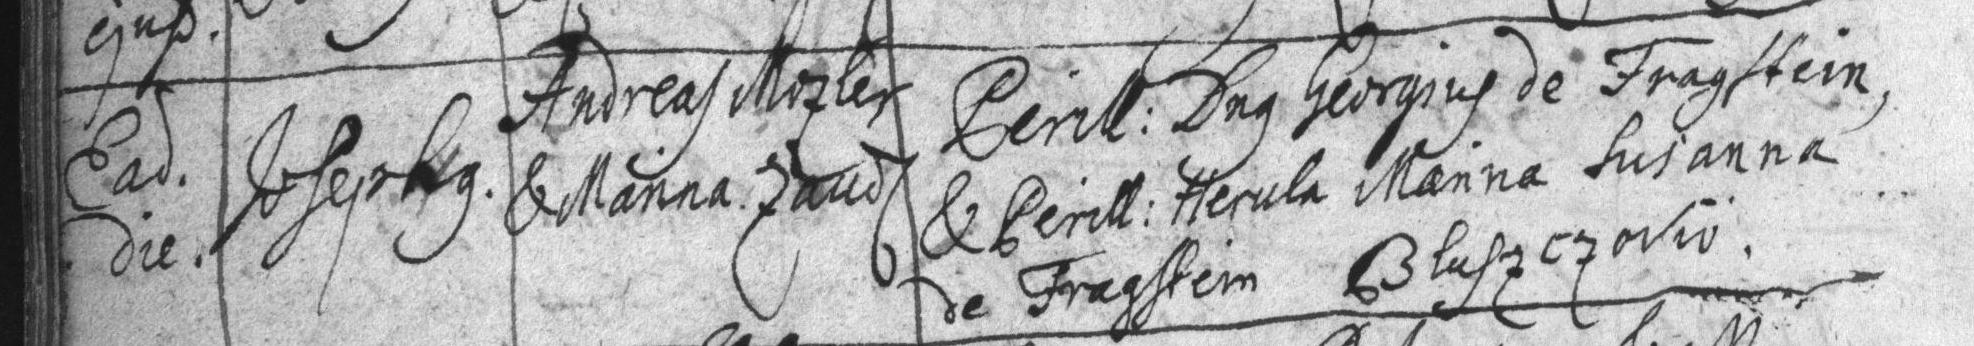 ejusd.
Ead.
die.
Josephg.
Andreas Mozler
& Marina. Zaud
Perill: Dng Georgius de Fragstein,
& Perill: Herula Marina Susanna
de Fragstein Bluszczovio.